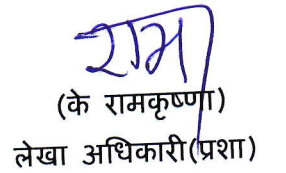 राम
(के रामकृष्णा)
लेखा अधिकारी(प्रशा)